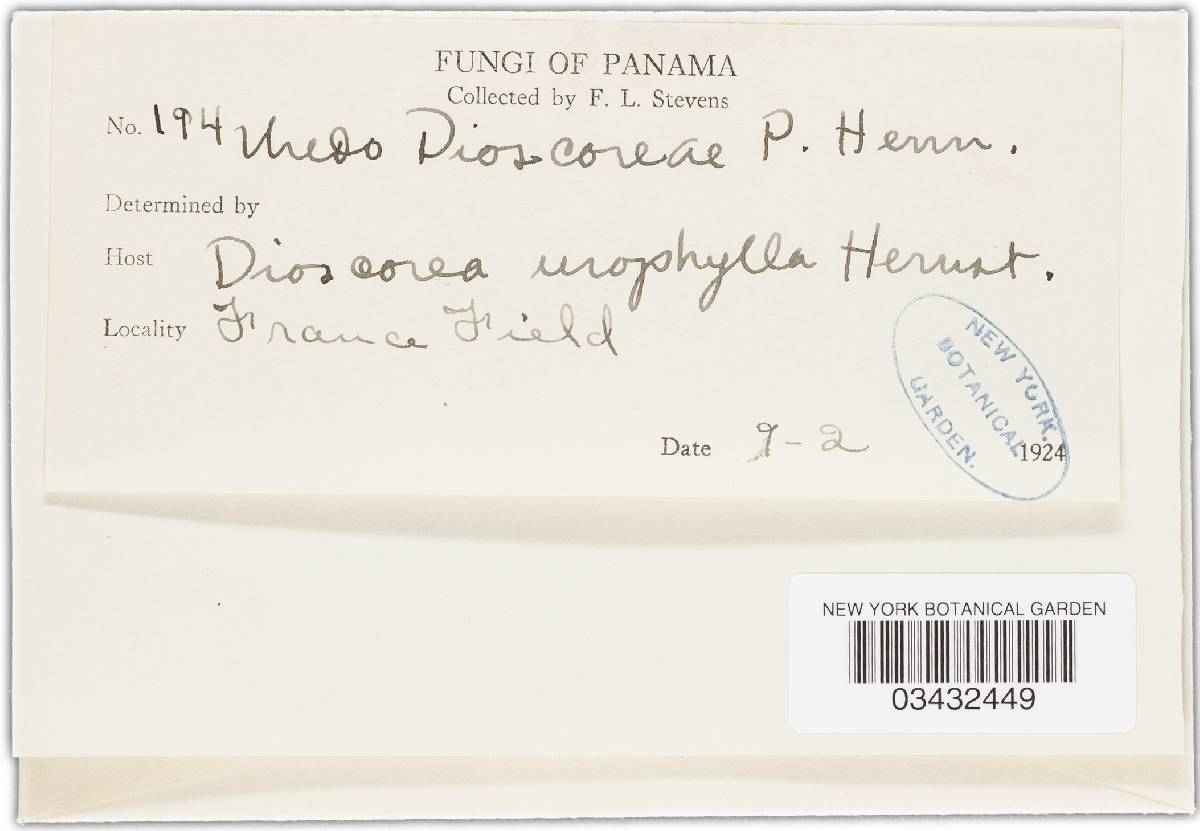 FUNGI OF PANAMA
Collected by F. L. Stevens
No. 194 Uredo Dioscoreae P. Henn.
Determined by
Host Dioscorea urophylla Hemst.
Locality France Field
Date 9-2 1924
NEW YORK
BOTANICAL
GARDEN.
NEW YORK BOTANICAL GARDEN
03432449